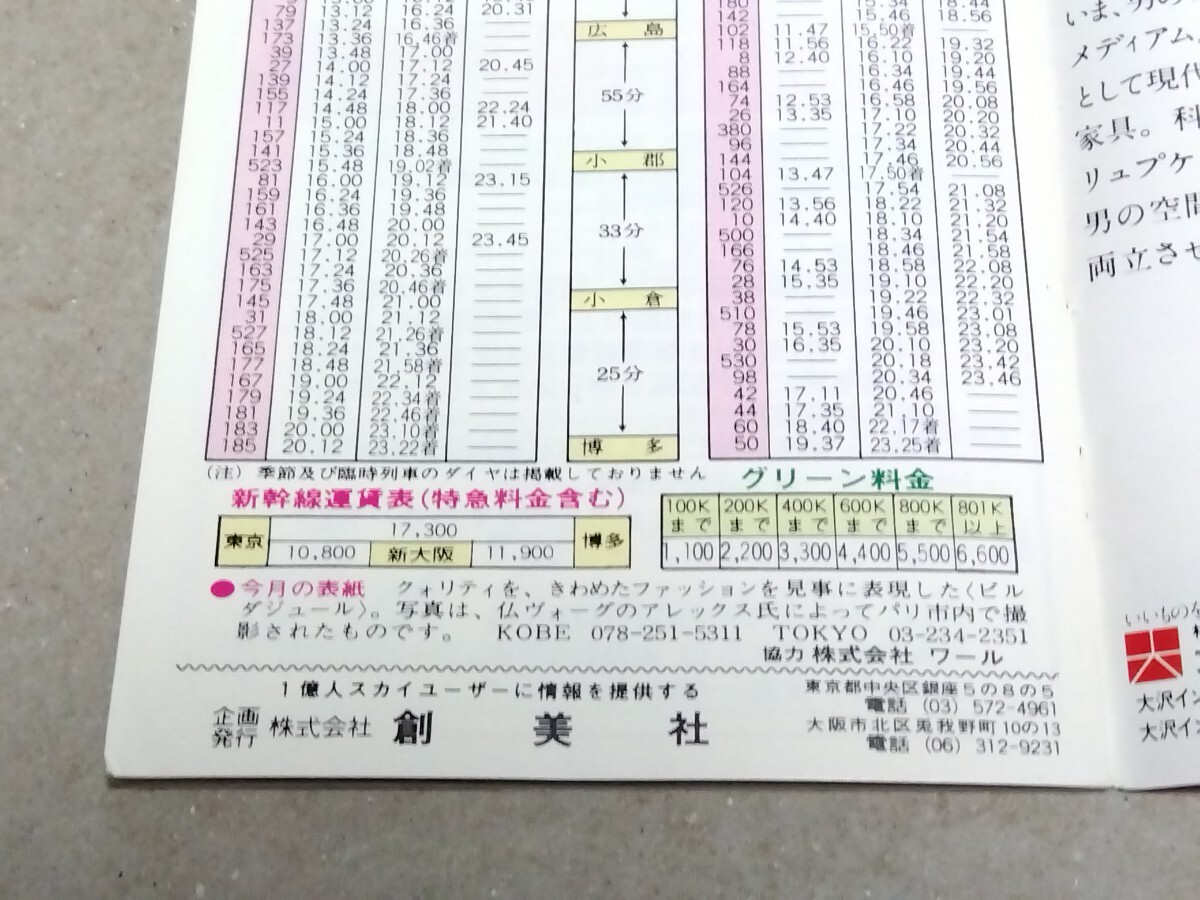 79 13.12 16.24 20.31
137 13.24 16.36
173 13.36 16.46着
39 13.48 17.00
27 14.00 17.12 20.45
139 14.12 17.24
155 14.24 17.36
117 14.48 18.00 22.24
11 15.00 18.12 21.40
157 15.24 18.36
141 15.36 18.48
523 15.48 19.02着
81 16.00 19.12 23.15
159 16.24 19.36
161 16.36 19.48
143 16.48 20.00
29 17.00 20.12 23.45
525 17.12 20.26着
163 17.24 20.36
175 17.36 20.46着
145 17.48 21.00
31 18.00 21.12
527 18.12 21.26着
165 18.24 21.36
177 18.48 21.58着
167 19.00 22.12
179 19.24 22.34着
181 19.36 22.46着
183 20.00 23.10着
185 20.12 23.22着
広島
55分
小郡
33分
小倉
25分
博多
180 15.34 18.44
142 15.46 18.56
102 11.47 15.50着
118 11.56 16.22 19.32
8 12.40 16.10 19.20
88 16.34 19.44
164 16.46 19.56
74 12.53 16.58 20.08
26 13.35 17.10 20.20
380 17.22 20.32
96 17.34 20.44
144 17.46 20.56
104 13.47 17.50着
526 17.54 21.08
120 13.56 18.22 21.32
10 14.40 18.10 21.20
500 18.34 21.54
166 18.46 21.58
76 14.53 18.58 22.08
28 15.35 19.10 22.20
38 19.22 22.32
510 19.46 23.01
78 15.53 19.58 23.08
30 16.35 20.10 23.20
530 20.18 23.42
98 20.34 23.46
42 17.11 20.46
44 17.35 21.10
60 18.40 22.17着
50 19.37 23.25着
(注) 季節及び臨時列車のダイヤは掲載しておりません
新幹線運賃表(特急料金含む)
東京 17,300 博多
10,800 新大阪 11,900
グリーン料金
100Kまで 200Kまで 400Kまで 600Kまで 800Kまで 801K以上
1,100 2,200 3,300 4,400 5,500 6,600
●今月の表紙 クォリティを、きわめたファッションを見事に表現した〈ビル
ダジュール〉。写真は、仏ヴォーグのアレックス氏によってパリ市内で撮
影されたものです。 KOBE 078-251-5311 TOKYO 03-234-2351
協力 株式会社 ワール
1億人スカイユーザーに情報を提供する
企画発行 株式会社 創美社
東京都中央区銀座5の8の5
電話 (03) 572-4961
大阪市北区兎我野町10の13
電話 (06) 312-9231
メディアム
として現代
家具。科
リュプケ
男の空間
両立させ
いいもの
大沢イン
大沢イン